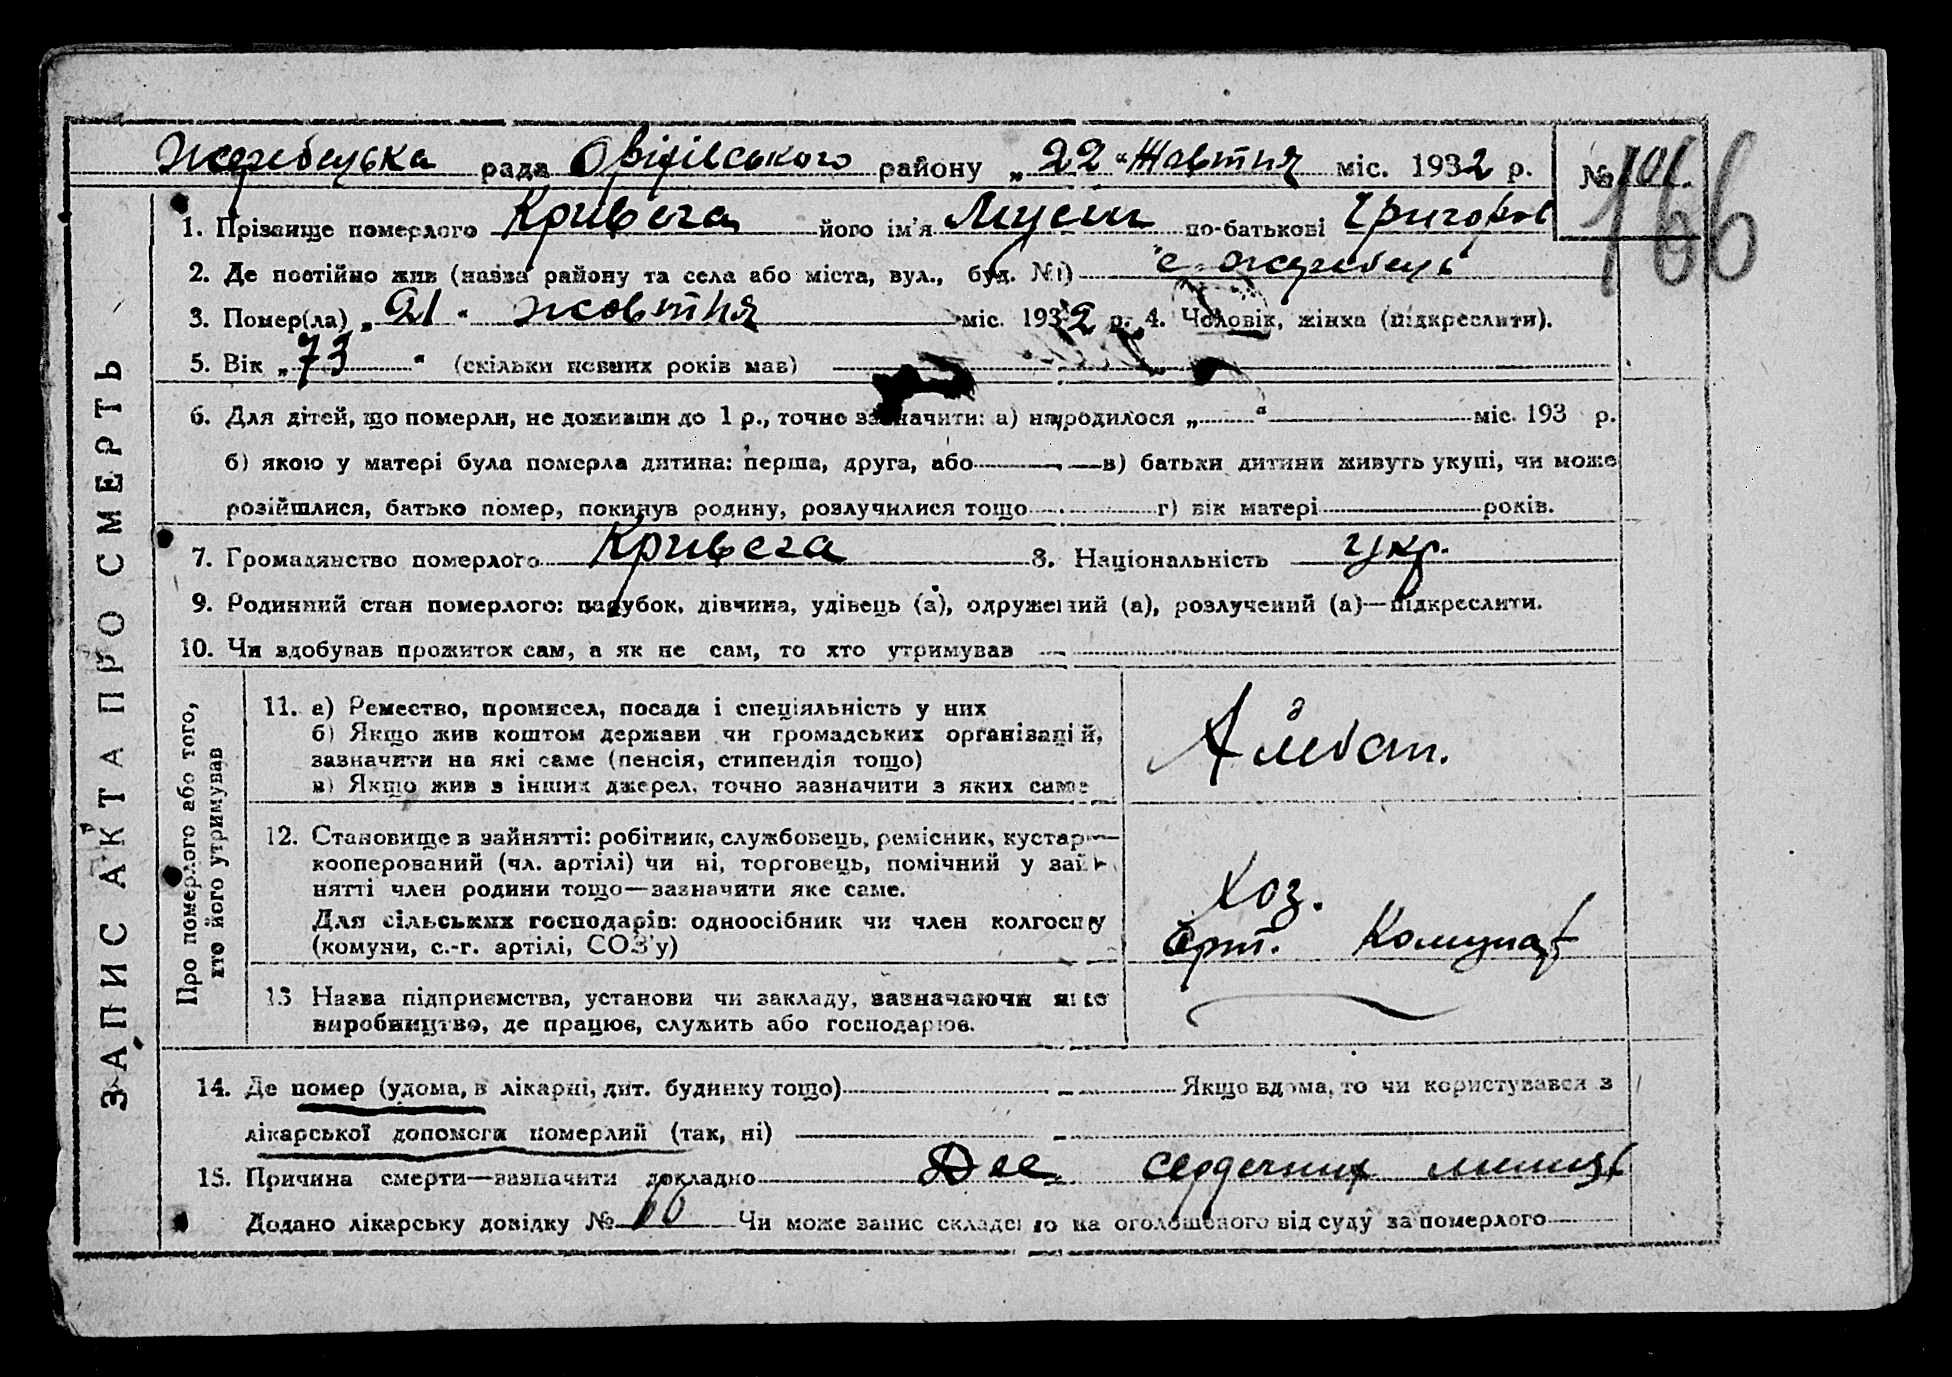 Жеребецька рада Оріхівського району „22“ Жовтня міс. 1932 р. № 101.
166
1. Прізвище померлого Кривега його ім'я Мусій по-батькові Григоров
2. Де постійно жив (назва району та села або міста, вул., буд. №) с. Жеребець
3. Помер(ла) „21“ жовтня міс. 1932 р. 4. Чоловік, жінка (підкреслити).
5. Вік „73“ (скільки повних років мав)
6. Для дітей, що померли, не доживши до 1 р., точно зазначити: а) народилося „ “ міс. 193 р.
б) якою у матері була померла дитина: перша, друга, або в) батьки дитини живуть укупі, чи може
розійшлися, батько помер, покинув родину, розлучилися тощо г) вік матері років.
7. Громадянство померлого Кривега 8. Національність укр.
9. Родинний стан померлого: парубок, дівчина, удівець (а), одружений (а), розлучений (а)—підкреслити.
10. Чи здобував прожиток сам, а як не сам, то хто утримував
ЗАПИС АКТА ПРО СМЕРТЬ
Про померлого або того,
хто його утримував
11. а) Ремество, промисел, посада і спеціяльність у них
б) Якщо жив коштом держави чи громадських організацій,
зазначити на які саме (пенсія, стипендія тощо)
в) Якщо жив з інших джерел, точно зазначити з яких саме
12. Становище в зайнятті: робітник, службовець, ремісник, кустар—
кооперований (чл. артілі) чи ні, торговець, помічний у зай-
нятті член родини тощо—зазначити яке саме.
Для сільських господарів: одноосібник чи член колгоспу
(комуни, с.-г. артілі, СОЗ'у)
Хоз.
Арт. Комунар
13 Назва підприємства, установи чи закладу, зазначаючи яке
виробництво, де працює, служить або господарює.
14. Де помер (удома, в лікарні, дит. будинку тощо) Якщо вдома, то чи користувався з
лікарської допомоги померлий (так, ні)
15. Причина смерти—зазначити докладно сердечних
Додано лікарську довідку № 66 Чи може запис складено на оголошеного від суду за померлого